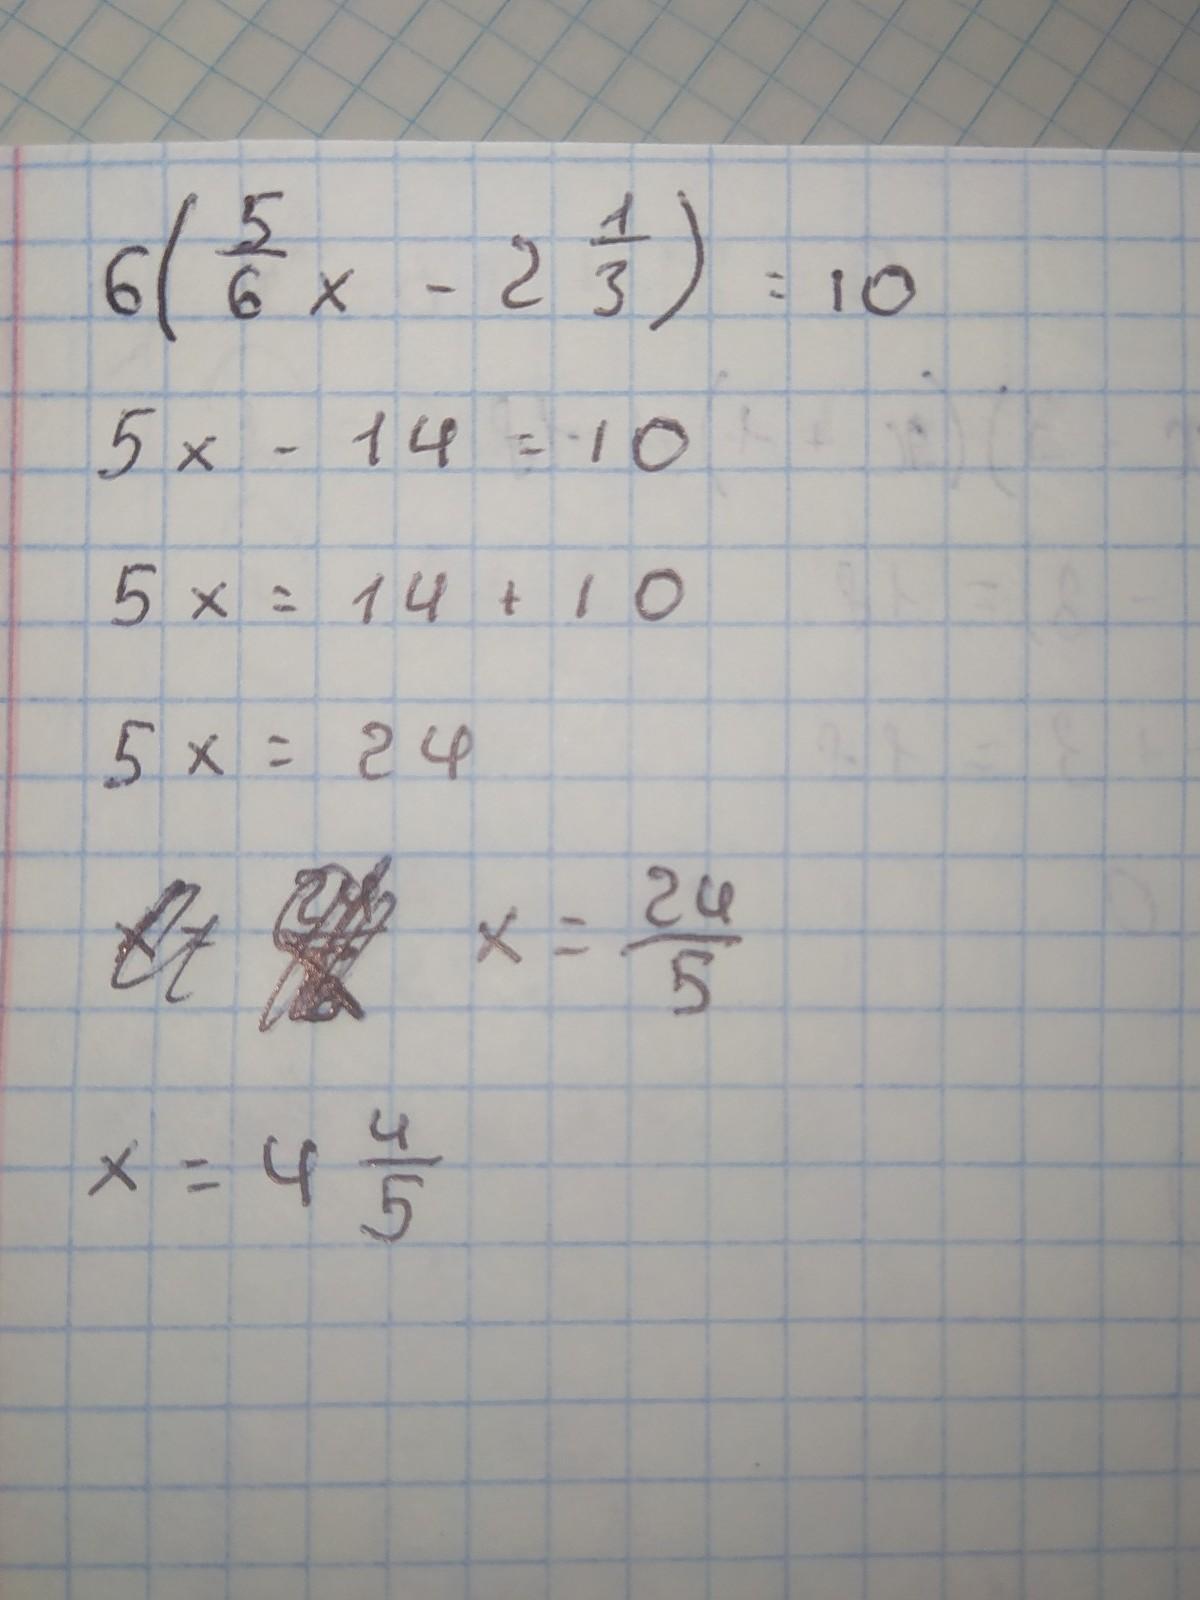 6(5/6 x - 2 1/3) = 10
5x - 14 = 10
5x = 14 + 10
5x = 24
x = 24/5
x = 4 4/5